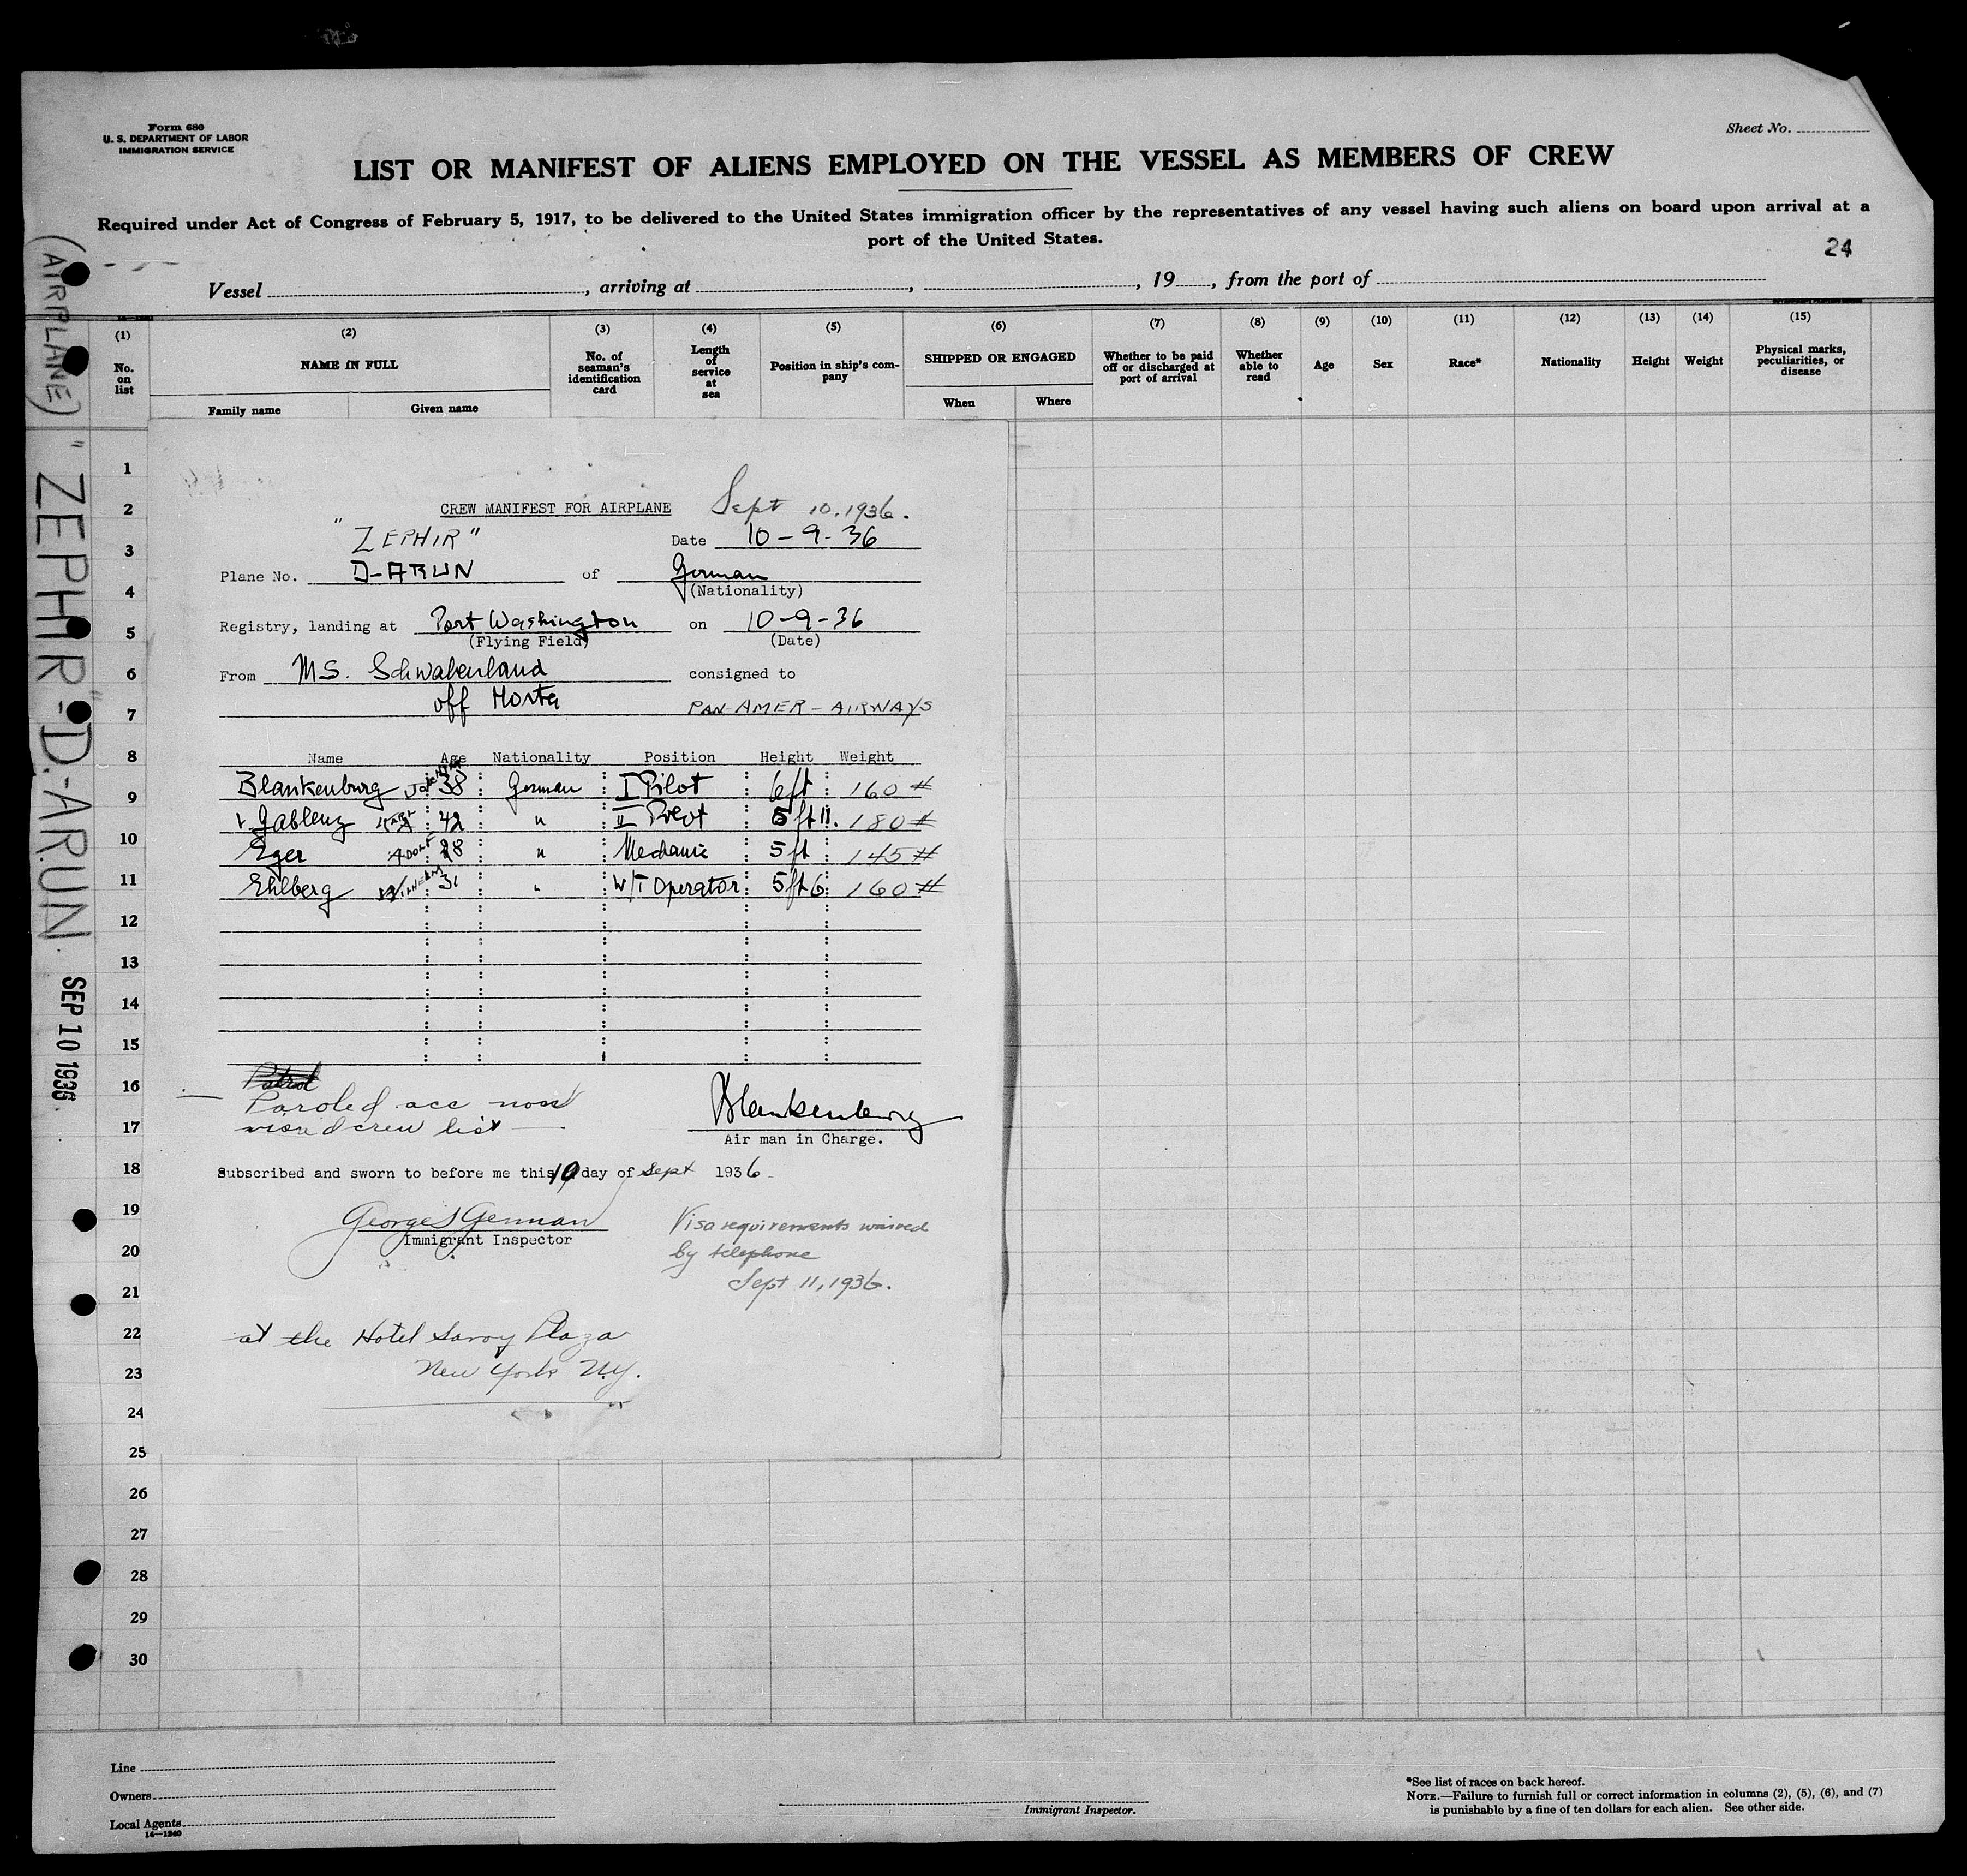 Form 680
U. S. DEPARTMENT OF LABOR
IMMIGRATION SERVICE
Sheet No.
LIST OR MANIFEST OF ALIENS EMPLOYED ON THE VESSEL AS MEMBERS OF CREW
Required under Act of Congress of February 5, 1917, to be delivered to the United States immigration officer by the representatives of any vessel having such aliens on board upon arrival at a
port of the United States.
24
Vessel , arriving at , , 19 , from the port of
(AIRPLANE) "ZEPHIR"-D.-ARUN. SEP 10 1936
(1) (2) (3) (4) (5) (6) (7) (8) (9) (10) (11) (12) (13) (14) (15)
No. on list
NAME IN FULL
Family name Given name
No. of seaman's identification card
Length of service at sea
Position in ship's company
SHIPPED OR ENGAGED
When Where
Whether to be paid off or discharged at port of arrival
Whether able to read
Age
Sex
Race*
Nationality
Height
Weight
Physical marks, peculiarities, or disease
1
2
3
4
5
6
7
8
9
10
11
12
13
14
15
16
17
18
19
20
21
22
23
24
25
26
27
28
29
30
CREW MANIFEST FOR AIRPLANE Sept 10, 1936.
"ZEPHIR" Date 10-9-36
Plane No. D-ARUN of German
(Nationality)
Registry, landing at Port Washington on 10-9-36
(Flying Field) (Date)
From MS. Schwabenland consigned to
off Horta PAN-AMER-AIRWAYS
Name Age Nationality Position Height Weight
Blankenburg 38 German I Pilot 6ft 160 #
v Gablenz 42 " II Pilot 5 ft 11. 180 #
Eger Adolf 28 " Mechanic 5 ft 145 #
Ehlberg 31 " W/T Operator 5ft 6 160 #
Patrol
Paroled acc non
visa'd crew list
Blankenburg
Air man in Charge.
Subscribed and sworn to before me this 10 day of Sept 1936
George S German
Immigrant Inspector
Visa requirements waived
by telephone
Sept 11, 1936.
at the Hotel Savoy Plaza
New York N.Y.
Line
Owners
Local Agents
14-1240
Immigrant Inspector.
*See list of races on back hereof.
NOTE.—Failure to furnish full or correct information in columns (2), (5), (6), and (7)
is punishable by a fine of ten dollars for each alien. See other side.